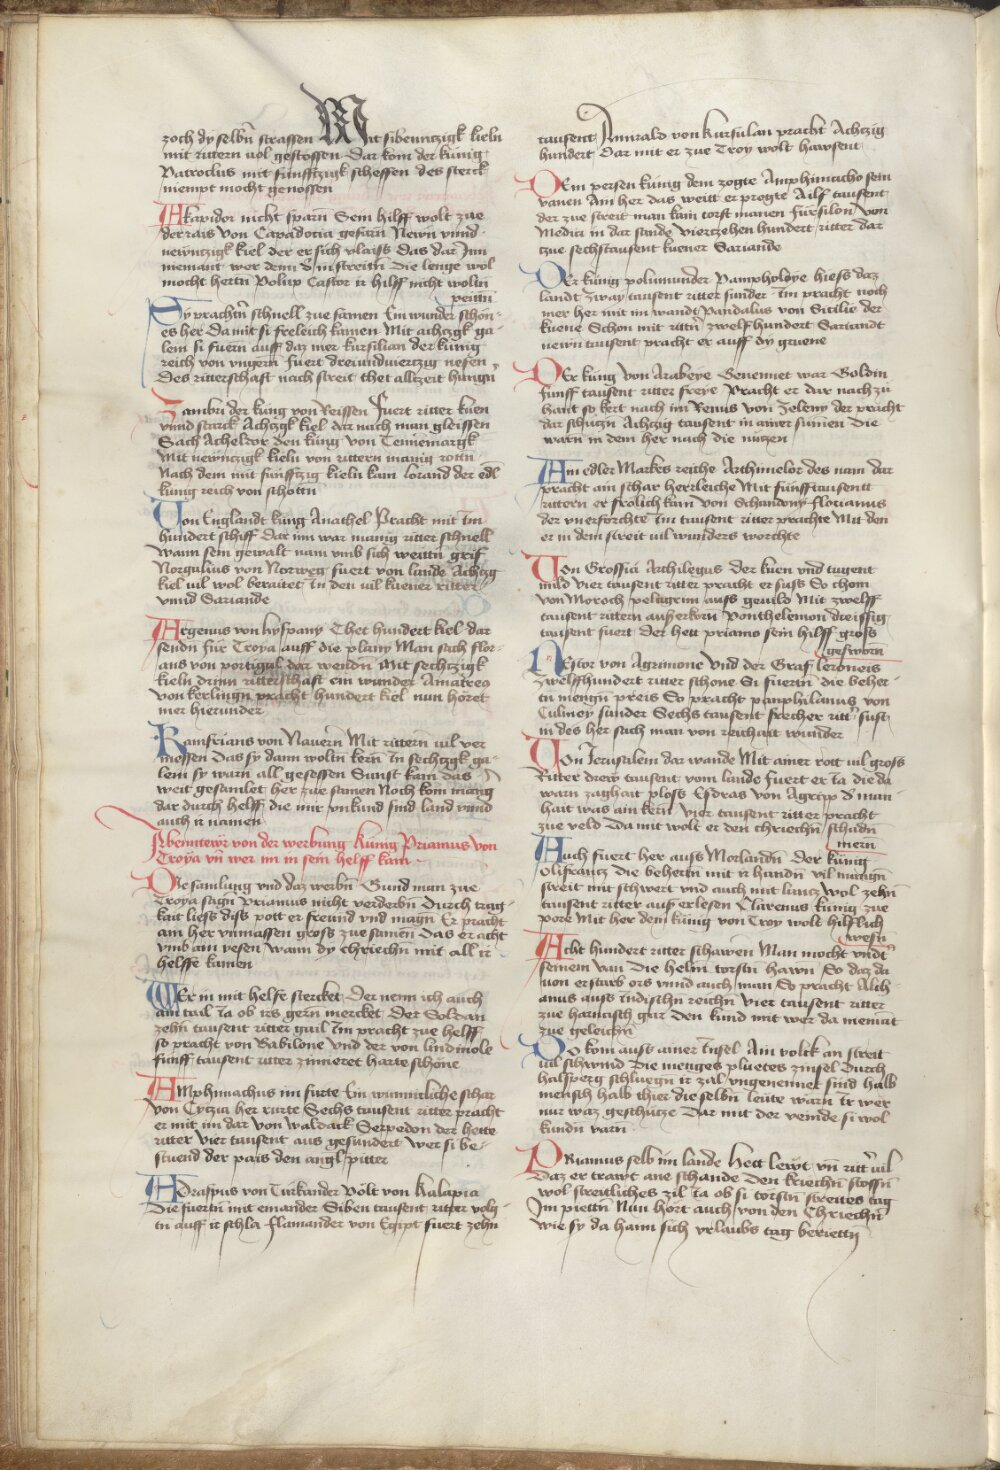 zoch dy selbñ strassen Mit sibenntzigk kieln
mit rittern vol gestossen Dar kom der künig
Patroclus mit fünfftzigk scheffen des sterck
niempt mocht genossen
Akapidor nicht sparñ Sein hilff wolt zue
der rais von Capadocia gefarñ Newn vnnd
newntzigk kiel der er sich vlaiss Das dar Inn
niemant wer denn d' in streittñ Die lenge wol
mocht hertñ Polup Castor ir hilff nicht woltñ
peittñ
Sy prachtñ schnell zue samen Ein wunder schon
es her Da mit si freleich kamen Mit achtzgk ga
lein si fuerñ auff daz mer kursilian der künig
reich von vngerñ fuert dreiundviertzig nefen
Des ritterschaft nach streit thet alltzeit hungñ
Zambri der küng von Reissen fuert ritter küen
vnnd starck Achtzgk kiel dar nach man gleissen
Sach Acheltor den küng von Tennemargk
Mit newntzigk kieln von rittern manig rottñ
Nach dem mit fünfftzig kieln kam Lorand der edl
künig reich von schottñ
Von Englandt küng Anachel Pracht mit Im
hundert schiff Dar inn war manig ritter schnell
Wann sein gewalt nam vmb sich weittñ grif
Norgulius von Norweg fuert von lande Achtzg
kiel vil wol beraitet In den vil kuener ritter
vnnd Sariande
Argenus von hyspany Thet hundert kiel dar
sendñ für Troya auff die plany Man sach flor
ans von portigal dar wendñ Mit sechtzigk
kieln drinn ritterschafft ein wunder Amateeo
von kerlingñ pracht hundert kiel nun höret
mer hierunder
Ramfrians von Nauerñ Mit ritterñ vil ver
messen Das sy dann woltñ kerñ In sechtzgk ga
lein sy warñ all gesessen Sunst kam das
weit gesamlet her zue samen Noch kom manig
dar durch helff die mir vnkund sind land vnnd
auch ir namen
Abenntewr von der werbung künig Priamus von
Troya vñ wer im in sein helff kam
Die samlung vnd daz werbñ Gund man zue
Troya sagñ Priamus nicht verderbñ Durch trag
kait liess diss pott er freund vnd magñ Er pracht
ain her vnmassen gross zue samen Das er acht
vmb ain vesen wann dy chriechñ mit all ir
helffe kamen
Wer in mit helfe stercket Der nenn ich auch
ain tail Ia ob irs gern mercket Der Soldan
zehñ tausent ritter gail Im pracht zue helff
so pracht von Babilone vnd der von lindinole
funff tausent ritter zimieret harte schöne
Amphimachus im furte Ein wunnicliche schar
von Cytzia her rurte Sechs tausent ritter pracht
er mit im dar von waldack Serpedon der hette
ritter vier tausent aus gesundert wer si be
stuend der pais den angl pitter
Adraspus von Turkander Völt von kalapia
Die fuertñ mit einander Siben tausent ritter volg
tñ auff ir schla flamander von Egipt fuert zehñ
tausent Amirald von kursulan pracht Achtzig
hundert Dar mit er zue Troy wolt hawsent
Dem persen künig dem zogte Amphimucho sein
vanen Am her das weitt er progte Ailf tausent
der zue streit man kam torst manen fursilon von
Medici in dar sande viertzehen hundert ritter dar
tzue sechstausent kuener Sariande
Der küng polumunder Pampholoye hiess daz
landt Zway tausent ritter sunder Im pracht noch
mer her mit im wandt Pandalus von Sicilie der
kuene Schon mit rittñ zwelfhundert Sariandt
newn tausent pracht er auff dy gruene
Der küng von Arabeye Genennet war Goldin
funff tausent ritter freye Pracht er dar nach zu
hant so kert nach im Renus von Zeleny der pracht
dar schutzñ Achtzig tausent in ainer sumen Die
warñ in dem her nach die nutzen
Ain edler Markes reiche Archimelor des nam dar
pracht ain schar herrleiche Mit fünfftausentt
rittern er frölich kam von Schandony florianus
der vnerforchte Im tausent ritter prachte Mit den
er in dem streit vil wunders worchte
Von Grossia Archilegus der kuen vnd tugent
mild vier tausent ritter pracht er suss So chom
von Moroch pelugrim auss gevild Mit zwelff
tausent rittern ausserkorñ Ponthelemon dreissig
tausent fuert der hett priamo sein hilff gross
gesworñ
Nestor von Agrimone Vnd der Graf leroneis
zwelffhundert ritter schone Si fuertñ die beher
tñ mengñ preis So pracht pamphilanus von
Culmey sunder Sechs tausent frecher ritt' sust
in des her sach man von reichait wunder
Von Jerusalem dar wande Mit ainer rott vil gross
Ritter drew tausent vom lande fuert er Ia die da
warñ zaghait ploss Esdras von Agripp d' man
hait was ain kerñ vier tausent ritter pracht
zue veld Da mit wolt er den chriechñ schadñ
mern
Auch fuert her auss Morlandñ Der künig
Olifrantz die behertñ mit ir handñ vil manign
streit mit schwert vnd auch mit lantz wol zehñ
tausent ritter auf erlesen Clarenus künig zue
pore Mit her dem künig von Troy wolt hilflich
wesñ
Acht hundert ritter schawen Man mocht vndt'
seinem van Die helm torstñ hawñ So daz da
von erstarb ors vnnd auch man So pracht Alih
anus auss Indischñ reichñ vier tausent ritter
zue harnasch gar Den kund mit wer da niemat
zue geleichñ
Do kom auss ainer Insel Am volck an streit
vil schwind Die menges pluetes zinsel Durch
halsperg schluegñ ir zal vngenennet sind halb
mensch halb thier die selbñ leute warñ Ir wer
nur waz geschütze Dar mit der veinde si wol
kundñ varñ
Priamus selb im lande Hett lewt vñ ritt' vil
Daz er trawt ane schande Den kriechñ stossñ
wol streitliches zil Ia ob si torstñ streites tag
Im piettñ Nun hört auch von den Chriechñ
wie sy da haim sich vrlaubs tag beriettñ